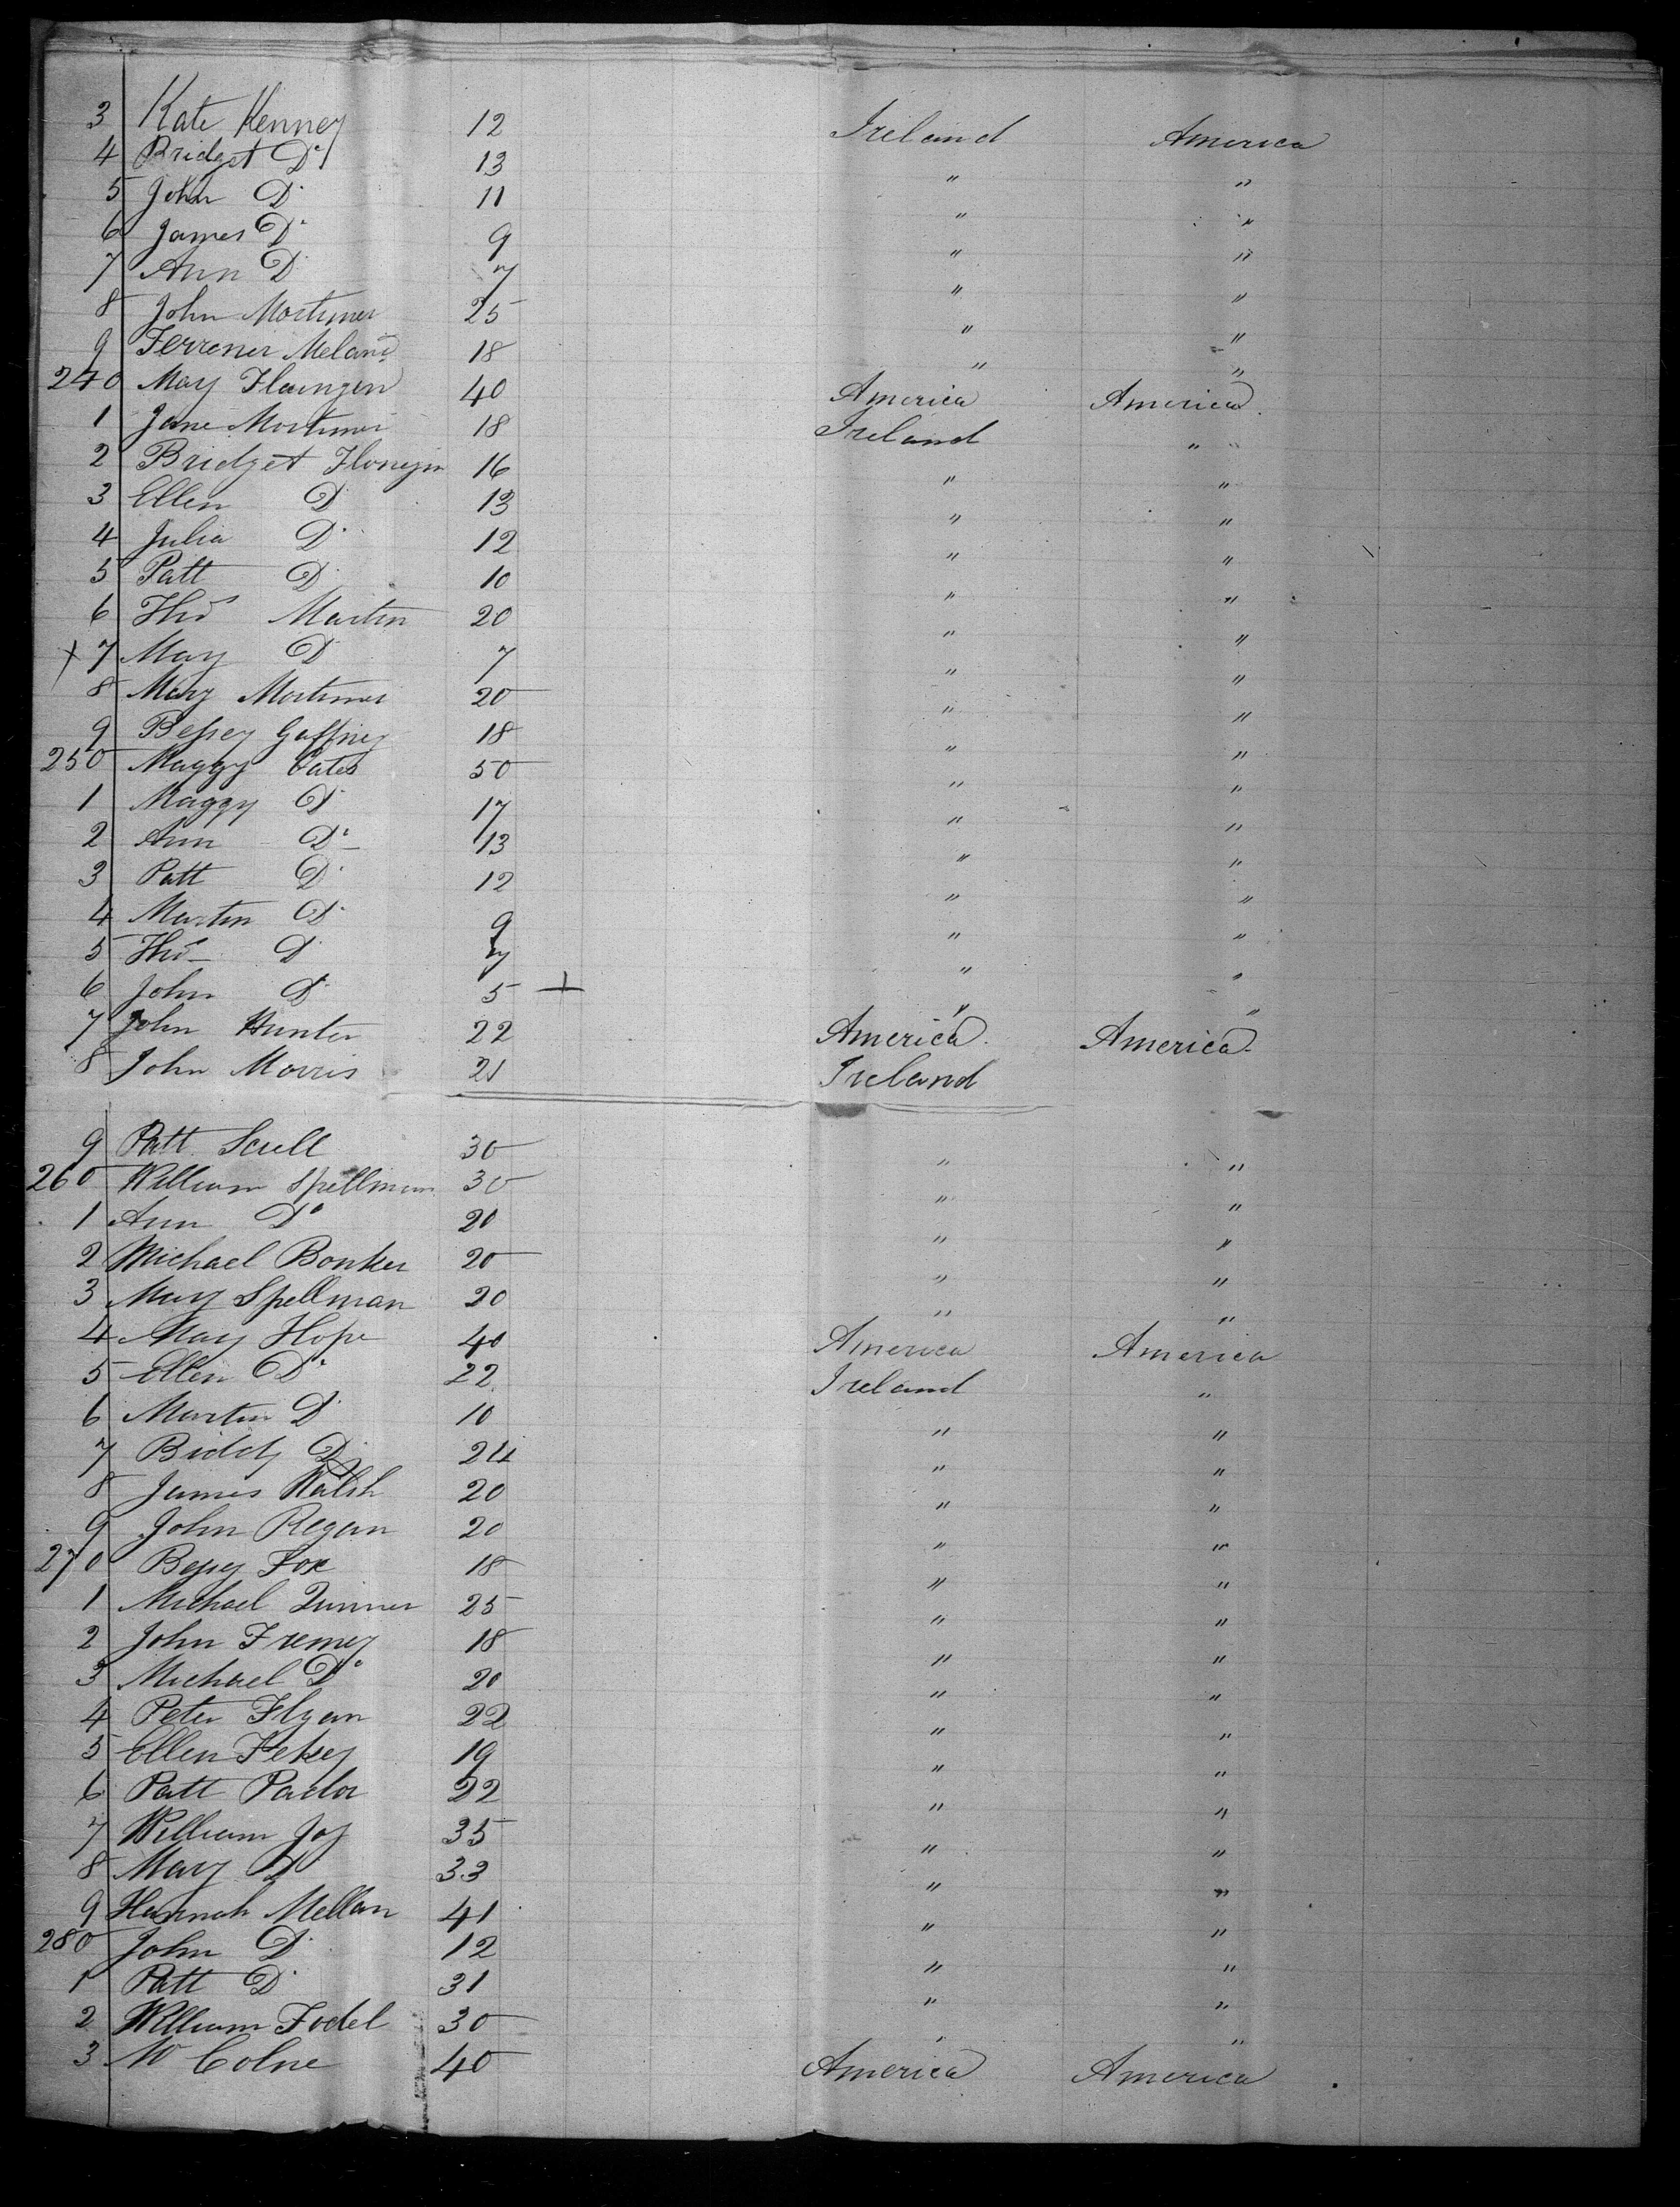 3 Kate Kenney 12 Ireland America
4 Bridget Do 13 " "
5 John Do 11 " "
6 James Do 9 " "
7 Ann D 7 " "
8 John Mortimer 25 " "
9 18 " "
240 May 40 America America
1 Jane Mortimer 18 Ireland "
2 Bridget 16 " "
3 Ellen D 13 " "
4 Julia D 12 " "
5 Patt D 10 " "
6 Thos Martin 20 " "
+ 7 May D 7 " "
8 Mary Mortimer 20 " "
9 Bessey Gaffney 18 " "
250 Maggy Cates 50 " "
1 Maggy D 17 " "
2 Ann Do 13 " "
3 Patt D 12 " "
4 Martin D 9 " "
5 Thos D 7 " "
6 John D 5 + " "
7 John Hunter 22 America America
8 John Morris 21 Ireland
9 Patt Scull 30 " "
260 William Spellman 30 " "
1 Ann Do 20 " "
2 Michael Bonker 20 " "
3 Mary Spellman 20 " "
4 May Hope 40 America America
5 Ellen Do 22 Ireland "
6 Martin D 10 " "
7 Biddy D 24 " "
8 James Walsh 20 " "
9 John Regan 20 " "
270 Bessy Fox 18 " "
1 Michael 25 " "
2 John 18 " "
3 Michael Do 20 " "
4 Peter Flyan 22 " "
5 Ellen 19 " "
6 Patt 22 " "
7 William Joy 35 " "
8 Mary D 33 " "
9 Hannah Mellan 41 " "
280 John D 12 " "
1 Patt D 31 " "
2 William Fodel 30 " "
3 Colne 40 America America